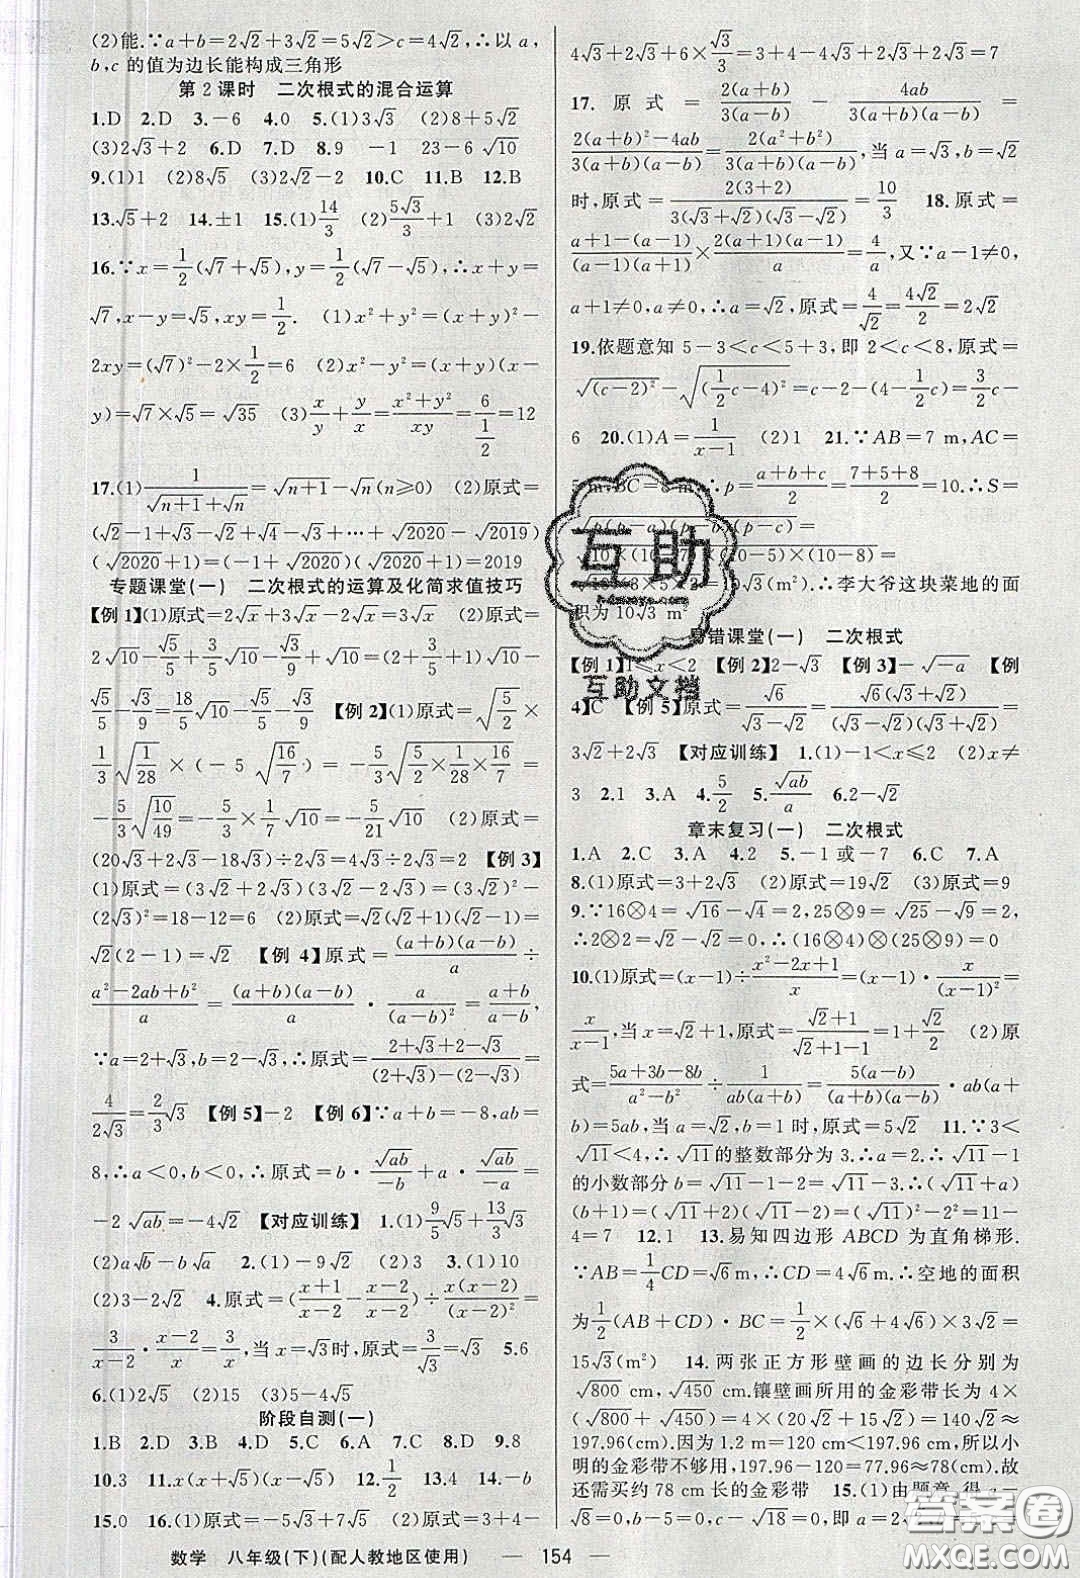 (2)能.∵a+b=2√2+3√2=5√2>c=4√2,∴以a,
b,c的值为边长能构成三角形
第2课时 二次根式的混合运算
1.D 2.D 3.-6 4.0 5.(1)3√3 (2)8+5√2
(3)2√3+2 6.D 7.D 8.9 -1 23-6√10
9.(1)1 (2)8√5 (3)2√2-2 10.C 11.B 12.B
13.√5+2 14.±1 15.(1)14/3 (2)5√3/3+1 (3)2√2
16.∵x=1/2(√7+√5),y=1/2(√7-√5),∴x+y=
√7,x-y=√5,xy=1/2. (1)x²+y²=(x+y)²-
2xy=(√7)²-2×1/2=6 (2)x²-y²=(x+y)(x-
y)=√7×√5=√35 (3)x/y+y/x=(x²+y²)/xy=6/(1/2)=12
17.(1)1/(√n+1+√n)=√n+1-√n(n≥0) (2)原式=
(√2-1+√3-√2+√4-√3+…+√2020-√2019)
(√2020+1)=(-1+√2020)(√2020+1)=2019
专题课堂(一) 二次根式的运算及化简求值技巧
【例1】(1)原式=2√x+3√x-2√x=3√x (2)原式=
2√10-√5/5+√3/9-√10/2=3/2√10-√5/5+√3/9
【例2】(1)原式=√(5/2)×
1/3√(1/28)×(-5√(16/7))=-5/3√(5/2×1/28×16/7)=
-5/3√(10/49)=-5/3×1/7√10=-5/21√10 (2)原式=
(20√3+2√3-18√3)÷2√3=4√3÷2√3=2 【例3】
(1)原式=(3√2+2√3)(3√2-2√3)=(3√2)²-
(2√3)²=18-12=6 (2)原式=√2(√2+1)(√2-1)=
√2(2-1)=√2 【例4】原式=(a+b)(a-b)/a÷
(a²-2ab+b²)/a=(a+b)(a-b)/a·a/(a-b)²=(a+b)/(a-b),
∵a=2+√3,b=2-√3,∴原式=(2+√3+2-√3)/((2+√3)-(2-√3))=
4/(2√3)=2/3√3 【例5】-2 【例6】∵a+b=-8,ab=
8,∴a<0,b<0,∴原式=b·√ab/-b+a·√ab/-a=
-2√ab=-4√2 【对应训练】1.(1)9/5√5+13/3√3
(2)a√b-b√a 2.(1)-9√2 (2)3 3.(1)10
(2)3-2√2 4.原式=((x+1)/(x-2)-(x-2)/(x-2))÷x(x-2)/(x-2)²=
3/(x-2)·(x-2)/x=3/x,当x=√3时,原式=3/√3=√3 5.6
6.(1)2√2 (2)15 (3)5-4√5
阶段自测(一)
1.B 2.D 3.B 4.D 5.B 6.A 7.C 8.D 9.8
10.3 11.x(x+√5)(x-√5) 12.1/2 13.4 14.-b
15.0 16.(1)原式=-5√3+7√5 (2)原式=3+4-
4√3+2√3+6×√3/3=3+4-4√3+2√3+2√3=7
17.原式=2(a+b)/3(a-b)-4ab/3(a+b)(a-b)=
(2(a+b)²-4ab)/3(a+b)(a-b)=2(a²+b²)/3(a+b)(a-b),当a=√3,b=√2
时,原式=2(3+2)/3(√3+√2)(√3-√2)=10/3 18.原式=
(a+1-(a-1))/(a-1)(a+1)×2(a+1)(a-1)/a=4/a,又∵a-1≠0,
a+1≠0,a≠0,∴a=√2,原式=4/√2=4√2/2=2√2
19.依题意知5-3<c<5+3,即2<c<8,原式=
√(c-2)²-√(1/2c-4)²=c-2-(4-1/2c)=3/2c-
6 20.(1)A=1/(x-1) (2)1 21.∵AB=7 m,AC=
5 m,BC=8 m,∴p=(a+b+c)/2=(7+5+8)/2=10.∴S=
√p(p-a)(p-b)(p-c)=
√10×(10-7)×(10-5)×(10-8)=
√10×3×5×2=10√3(m²).∴李大爷这块菜地的面
积为10√3 m²
易错课堂(一) 二次根式
【例1】1≤x<2 【例2】2-√3 【例3】-√-a 【例
4】C 【例5】原式=√6/(√3-√2)=√6(√3+√2)/(√3-√2)(√3+√2)=
3√2+2√3 【对应训练】1.(1)-1<x≤2 (2)x≠
3 2.1 3.A 4.5/2 5.√ab/a 6.2-√2
章末复习(一) 二次根式
1.A 2.C 3.A 4.2 5.-1或-7 6.C 7.A
8.(1)原式=3+2√2 (2)原式=19√2 (3)原式=9
9.∵16⊗4=√16-√4=2,25⊗9=√25-√9=2,
∴2⊗2=√2-√2=0,∴(16⊗4)⊗(25⊗9)=0
10.(1)原式=(x-1)÷(x²-2x+1)/x=(x-1)·x/(x-1)²=
x/(x-1),当x=√2+1,原式=(√2+1)/(√2+1-1)=1+√2/2 (2)原
式=(5a+3b-8b)/(a²-b²)÷1/ab(a+b)=5(a-b)/(a+b)(a-b)·ab(a+
b)=5ab,当a=√2,b=1时,原式=5√2 11.∵3<
√11<4,∴√11的整数部分为3.∴a=2.∴√11-1
的小数部分b=√11-1-2=√11-3.∴(√11+a)
(b+1)=(√11+2)(√11-2)=(√11)²-2²=11-
4=7 12.1 13.易知四边形ABCD为直角梯形.
∵AB=1/4CD=√6m,∴CD=4√6m.∴空地的面积
为1/2(AB+CD)·BC=1/2×(√6+4√6)×√2=
15√3(m²) 14.两张正方形壁画的边长分别为
√800 cm,√450 cm.镶壁画所用的金彩带长为4×
(√800+√450)=4×(20√2+15√2)=140√2≈
197.96(cm).因为1.2 m=120 cm<197.96 cm,所以小
明的金彩带不够用,197.96-120=77.96≈78(cm).故
还需买约78 cm长的金彩带 15.(1)由题意,得a=
√8=2√2,b=5,c=
数学 八年级(下)(配人教地区使用) — 154 —
互助
互助文档
答案圈
MXQE.COM